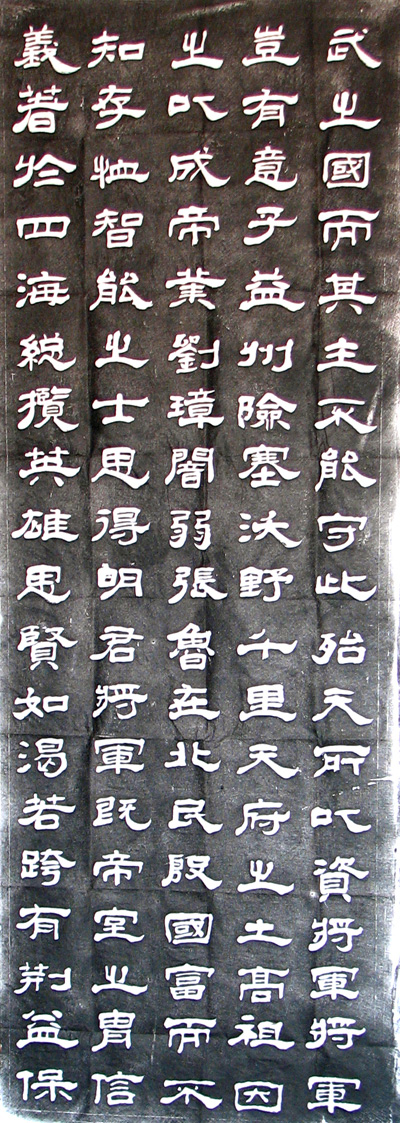 武之國而其主不能守此殆天所以資將軍將軍
豈有意乎益州險塞沃野千里天府之土高祖因
之以成帝業劉璋闇弱張魯在北民殷國富而不
知存恤智能之士思得明君將軍既帝室之胄信
義著於四海總攬英雄思賢如渴若跨有荊益保